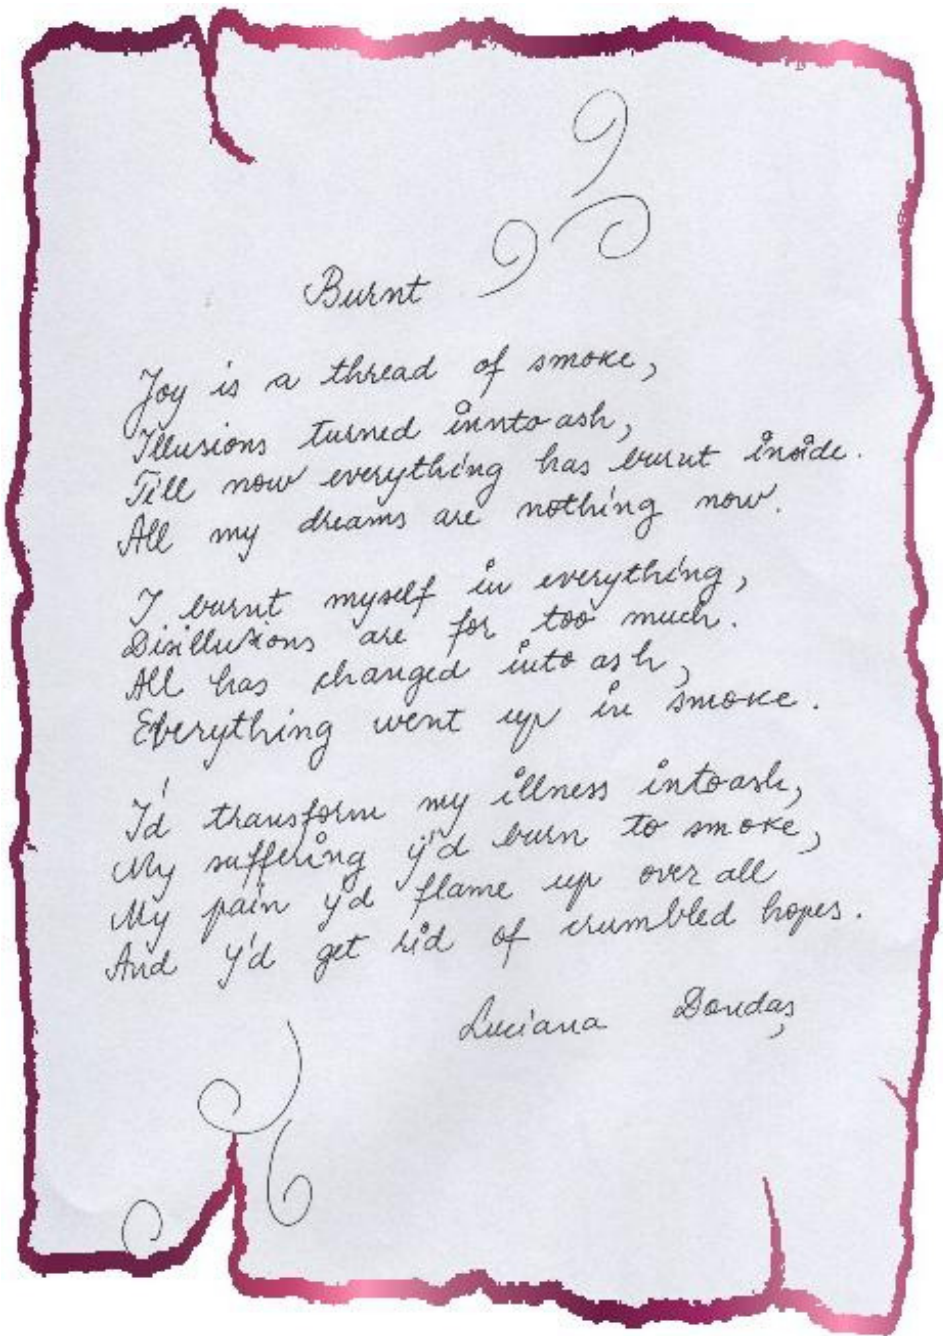 Burnt
Joy is a thread of smoke,
Illusions turned innto ash,
Till now everything has burnt inside.
All my dreams are nothing now.
I burnt myself in everything,
Disillusions are for too much.
All has changed into ash,
Everything went up in smoke.
I'd transform my illness into ash,
My suffering y'd burn to smoke,
My pain y'd flame up over all
And y'd get rid of crumbled hopes.
Luciana